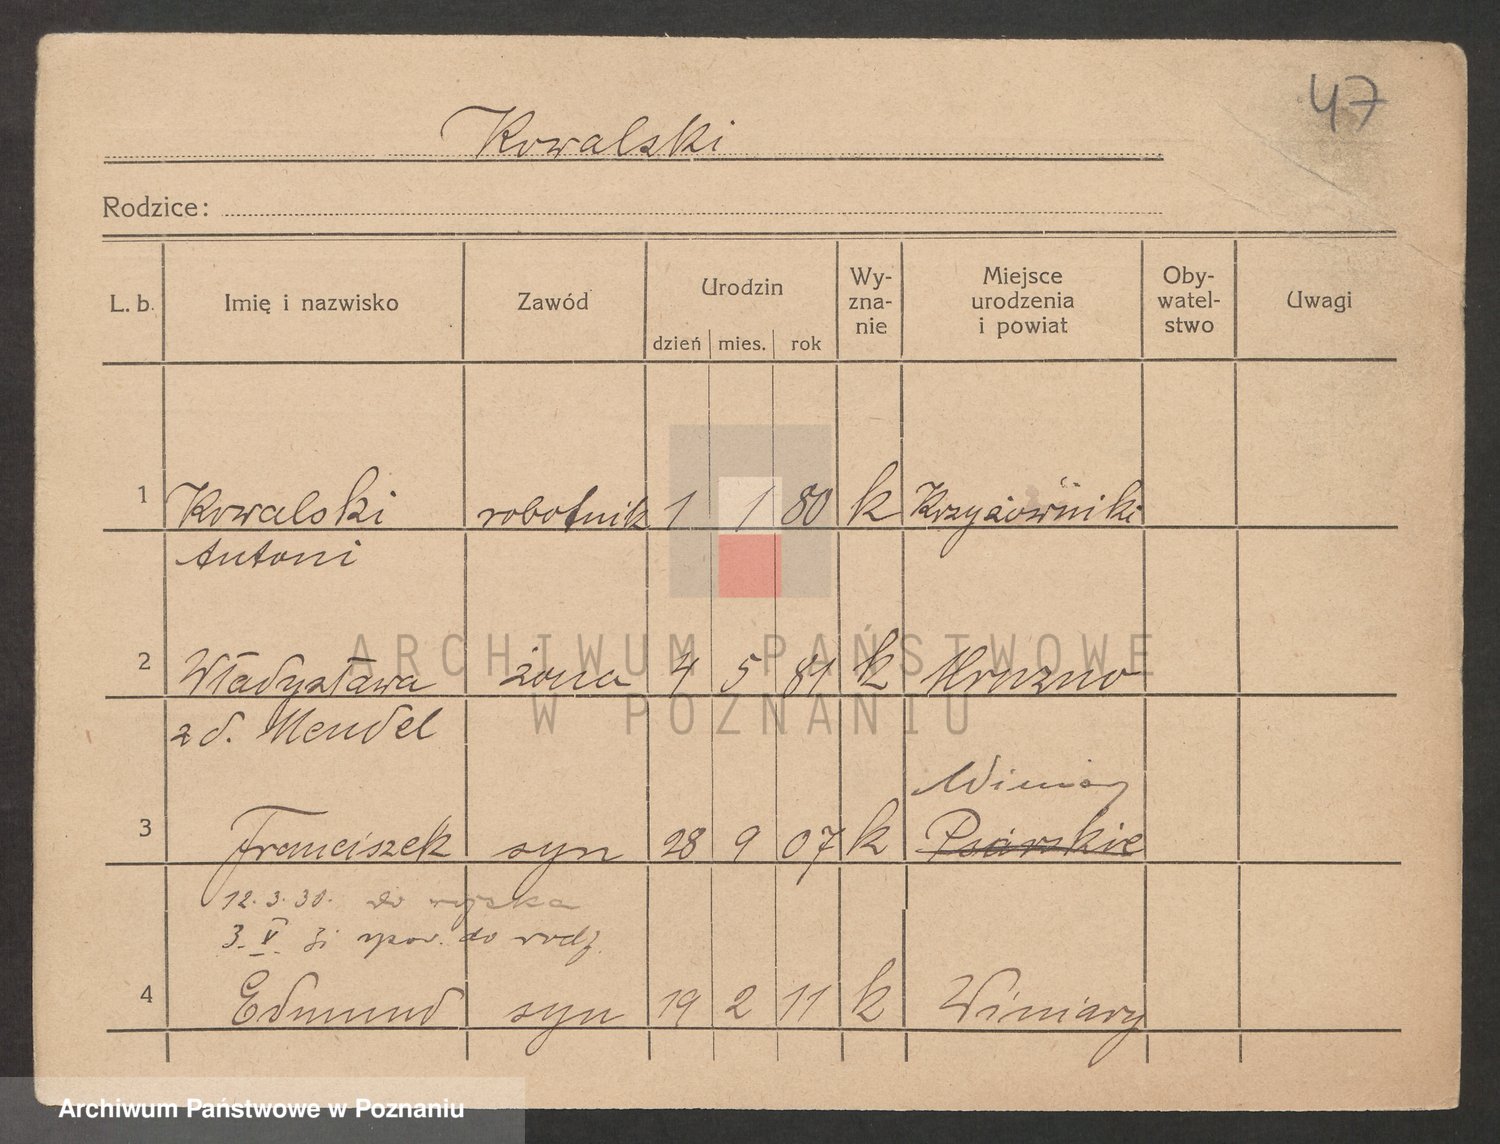 47
Kowalski
Rodzice:
L. b. Imię i nazwisko Zawód Urodzin dzień mies. rok Wy-zna-nie Miejsce urodzenia i powiat Oby-watel-stwo Uwagi
1 Kowalski robotnik 1 1 80 k Krzyżowniki
Antoni
2 Władysława żona 4 5 81 k
z d. Mendel
Winiary
3 Franciszek syn 28 9 07 k Psarskie
12.3.30. do wojska
3. V 31 spow. do rodz.
4 Edmund syn 19 2 11 k Winiary
ARCHIWUM PAŃSTWOWE
W POZNANIU
Archiwum Państwowe w Poznaniu